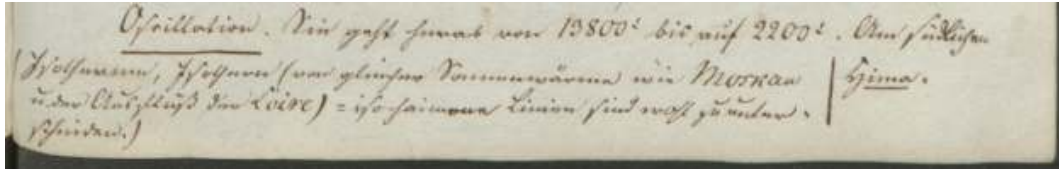 Oscillation. Sie geht herab von 13800' bis auf 2200'. Am südlichen
(Isothermen, Isotheren (von gleicher Sommerwärme wie Moskau | Hima-
u. der Ausfluß der Loire) = isochaimene Linien sind wohl zu unter-
scheiden.)